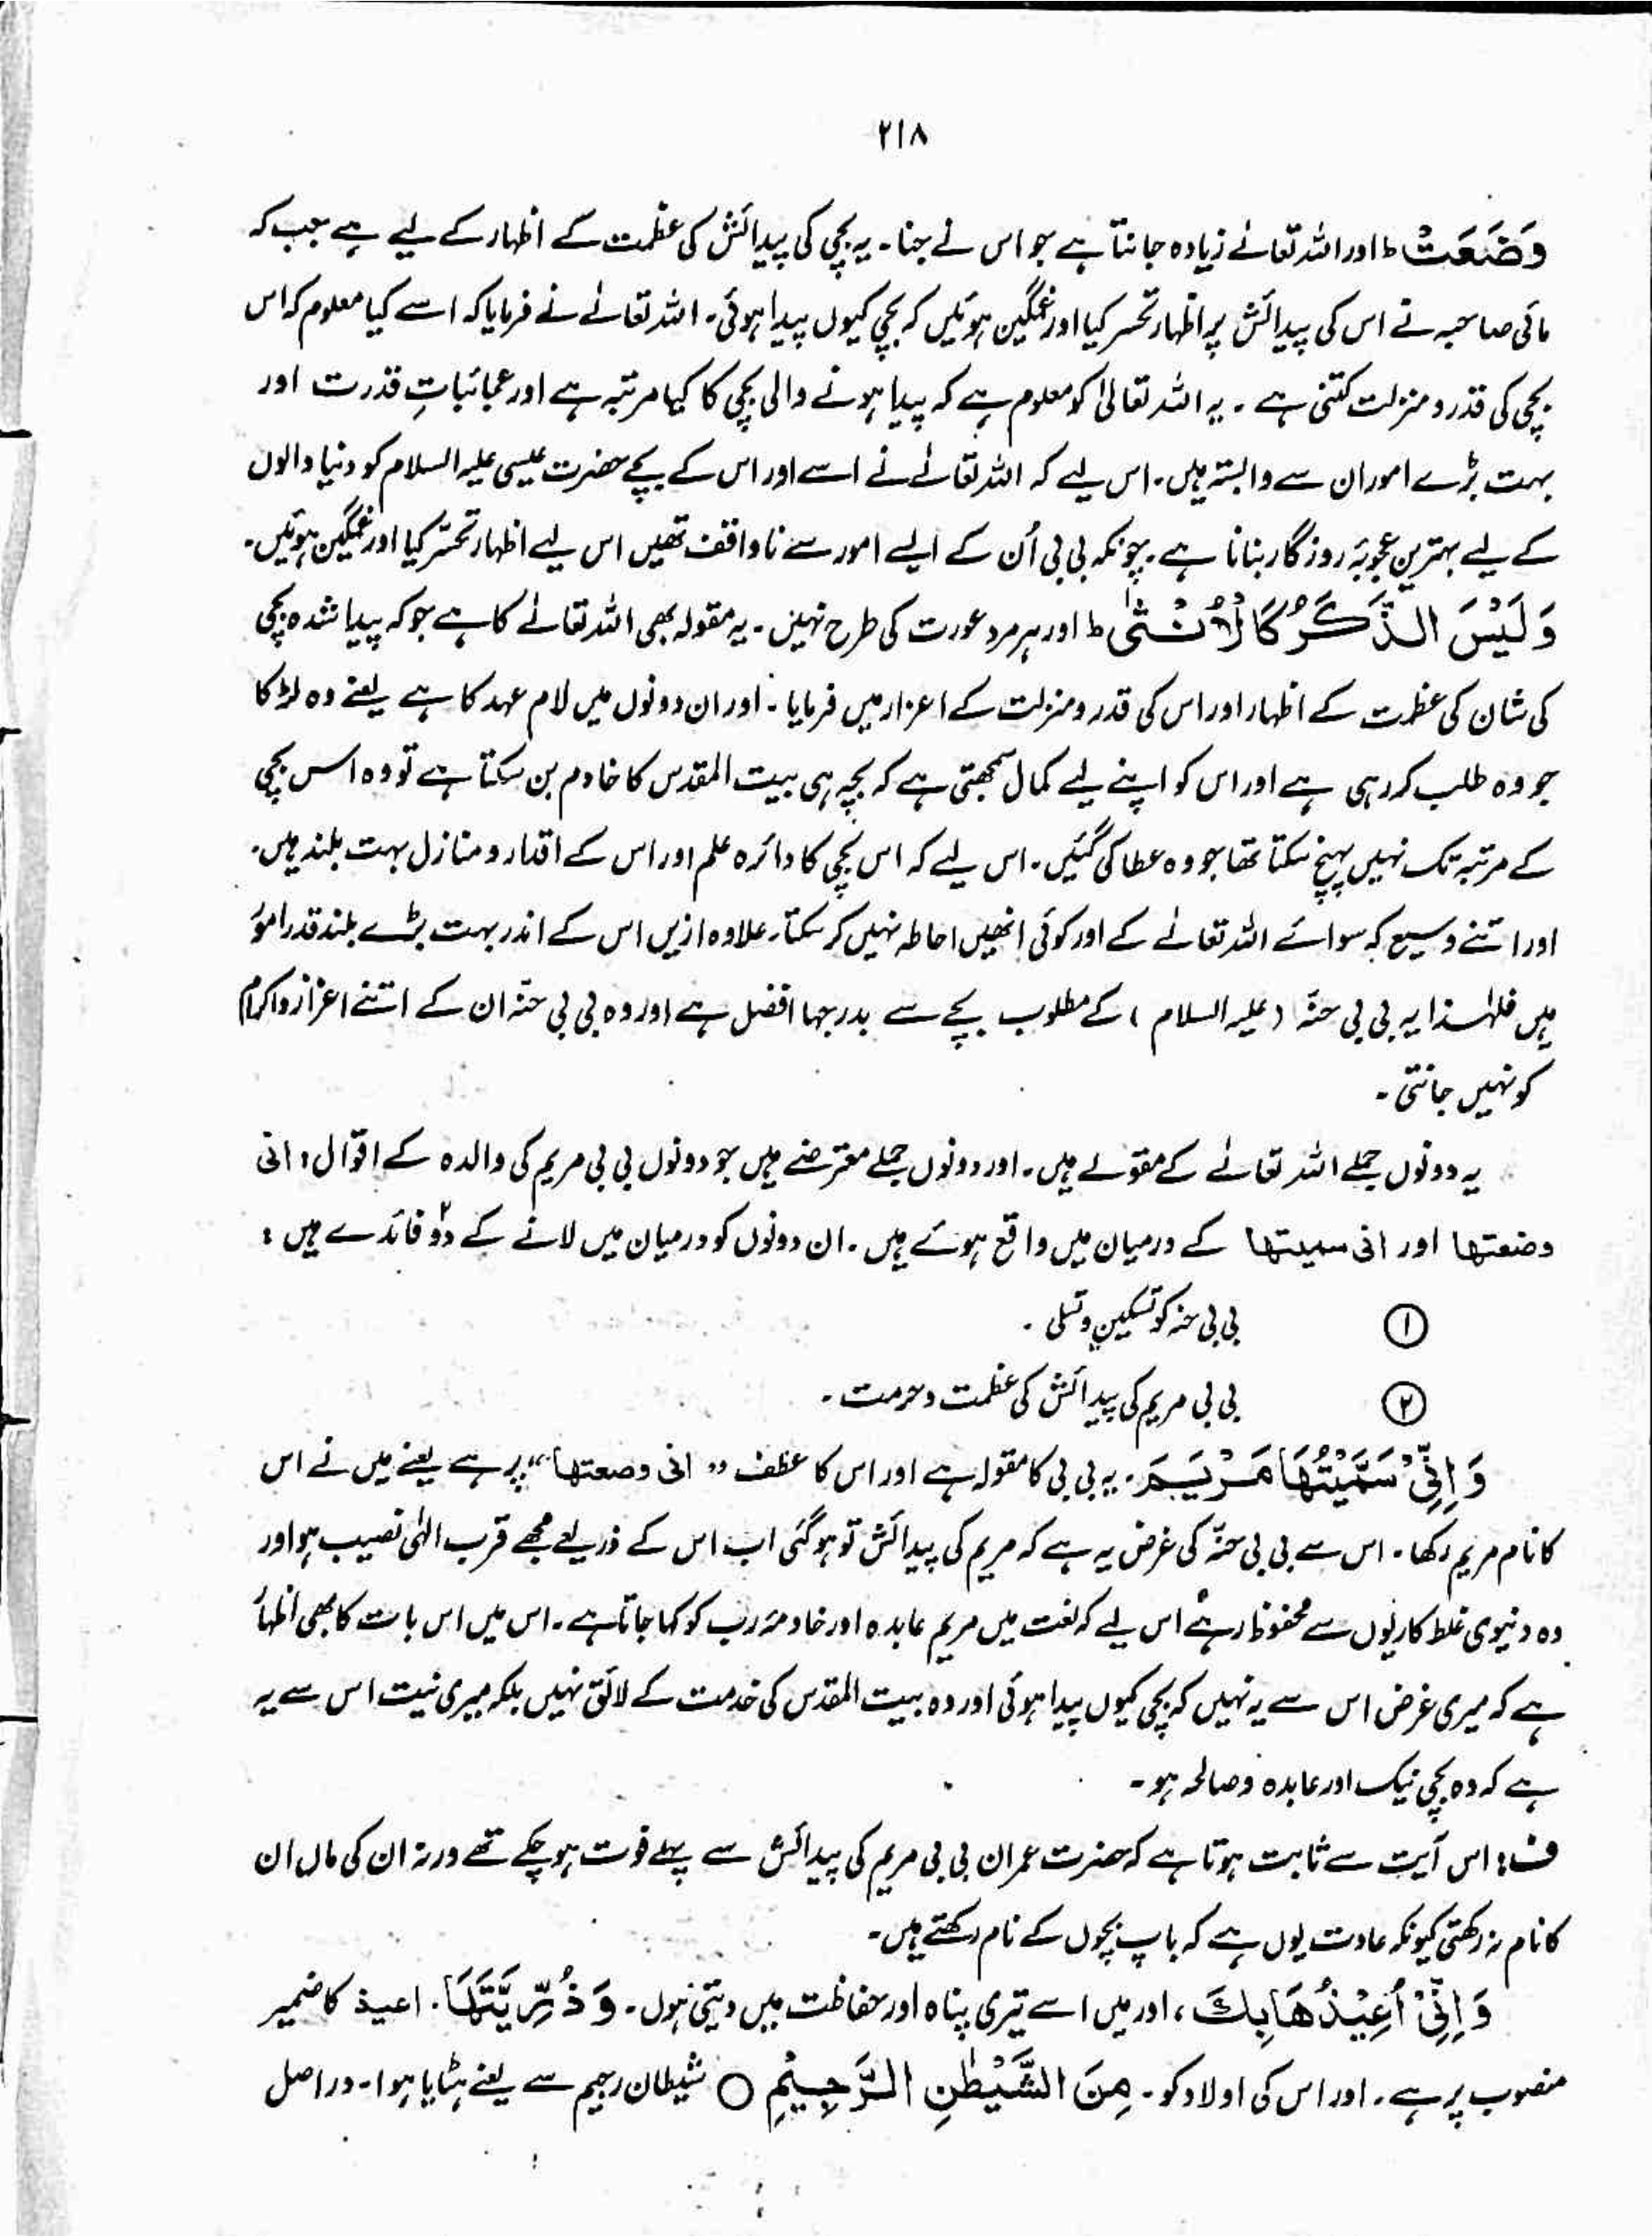 ۲۱۸
وَضَعَتْ ؕ اور اللہ تعالےٰ زیادہ جانتا ہے جو اس نے جنا۔ یہ بچی کی پیدائش کی عظمت کے اظہار کے لیے ہے جب کہ
مائی صاحبہ نے اس کی پیدائش پر اظہار تحسر کیا اور غمگین ہوئیں کہ بچی کیوں پیدا ہوئی۔ اللہ تعالےٰ نے فرمایا کہ اسے کیا معلوم کہ اس
بچی کی قدر و منزلت کتنی ہے ۔ یہ اللہ تعالیٰ کو معلوم ہے کہ پیدا ہونے والی بچی کا کیا مرتبہ ہے اور عجائباتِ قدرت اور
بہت بڑے امور ان سے وابستہ ہیں۔ اس لیے کہ اللہ تعالےٰ نے اسے اور اس کے بچے حضرت عیسی علیہ السلام کو دنیا والوں
کے لیے بہترین عجوبۂ روزگار بنانا ہے۔ چونکہ بی بی اُن کے ایسے امور سے ناواقف تھیں اس لیے اظہار تحسّر کیا اور غمگین ہوئیں۔
وَ لَیْسَ الذَّکَرُ کَالْاُنْثٰی ؕ اور ہر مرد عورت کی طرح نہیں ۔ یہ مقولہ بھی اللہ تعالےٰ کا ہے جو کہ پیدا شدہ بچی
کی شان کی عظمت کے اظہار اور اس کی قدر و منزلت کے اعزاز میں فرمایا ۔ اور ان دونوں میں لام عہد کا ہے یعنے وہ لڑکا
جو وہ طلب کر رہی ہے اور اس کو اپنے لیے کمال سمجھتی ہے کہ بچہ ہی بیت المقدس کا خادم بن سکتا ہے تو وہ اس بچی
کے مرتبہ تک نہیں پہنچ سکتا تھا جو وہ عطا کی گئیں۔ اس لیے کہ اس بچی کا دائرہ علم اور اس کے اقدار و منازل بہت بلند ہیں۔
اور اتنے وسیع کہ سوائے اللہ تعالےٰ کے اور کوئی انھیں احاطہ نہیں کر سکتا۔ علاوہ ازیں اس کے اندر بہت بڑے بلند قدر امور
ہیں فلہٰذا یہ بی بی حنّہ (علیہ السلام) کے مطلوب بچے سے بدرجہا افضل ہے اور وہ بی بی حنّہ ان کے اتنے اعزاز و اکرام
کو نہیں جانتی ۔
یہ دونوں جملے اللہ تعالےٰ کے مقولے ہیں۔ اور دونوں جملے معترضے ہیں جو دونوں بی بی مریم کی والدہ کے اقوال : انی
وضعتہا اور انی سمیتہا کے درمیان میں واقع ہوئے ہیں ۔ ان دونوں کو درمیان میں لانے کے دو۲ فائدے ہیں :
① بی بی حنہ کو تسکین و تسلی ۔
② بی بی مریم کی پیدائش کی عظمت و حرمت ۔
وَ اِنِّیْ سَمَّیْتُھَا مَرْیَمَ ۔ یہ بی بی کا مقولہ ہے اور اس کا عطف " انی وضعتہا" پر ہے یعنے میں نے اس
کا نام مریم رکھا۔ اس سے بی بی حنّہ کی غرض یہ ہے کہ مریم کی پیدائش تو ہو گئی اب اس کے ذریعے مجھے قرب الٰہی نصیب ہو اور
وہ دنیوی غلط کاریوں سے محفوظ رہے اس لیے کہ لغت میں مریم عابدہ اور خادمۂ رب کو کہا جاتا ہے ۔ اس میں اس بات کا بھی اظہار
ہے کہ میری غرض اس سے یہ نہیں کہ بچی کیوں پیدا ہوئی اور وہ بیت المقدس کی خدمت کے لائق نہیں بلکہ میری نیت اس سے یہ
ہے کہ وہ بچی نیک اور عابدہ و صالحہ ہو ۔
ف : اس آیت سے ثابت ہوتا ہے کہ حضرت عمران بی بی مریم کی پیدائش سے پہلے فوت ہو چکے تھے ورنہ ان کی ماں ان
کا نام نہ رکھتی کیونکہ عادت یوں ہے کہ باپ بچوں کے نام رکھتے ہیں۔
وَ اِنِّیْ اُعِیْذُھَا بِکَ ، اور میں اسے تیری پناہ اور حفاظت میں دیتی ہوں ۔ وَ ذُرِّیَّتَہَا ۔ اعیذ کا ضمیر
منصوب پر ہے ۔ اور اس کی اولاد کو ۔ مِنَ الشَّیْطٰنِ الرَّجِیْمِ ○ شیطان رجیم سے یعنے ہٹایا ہوا۔ دراصل